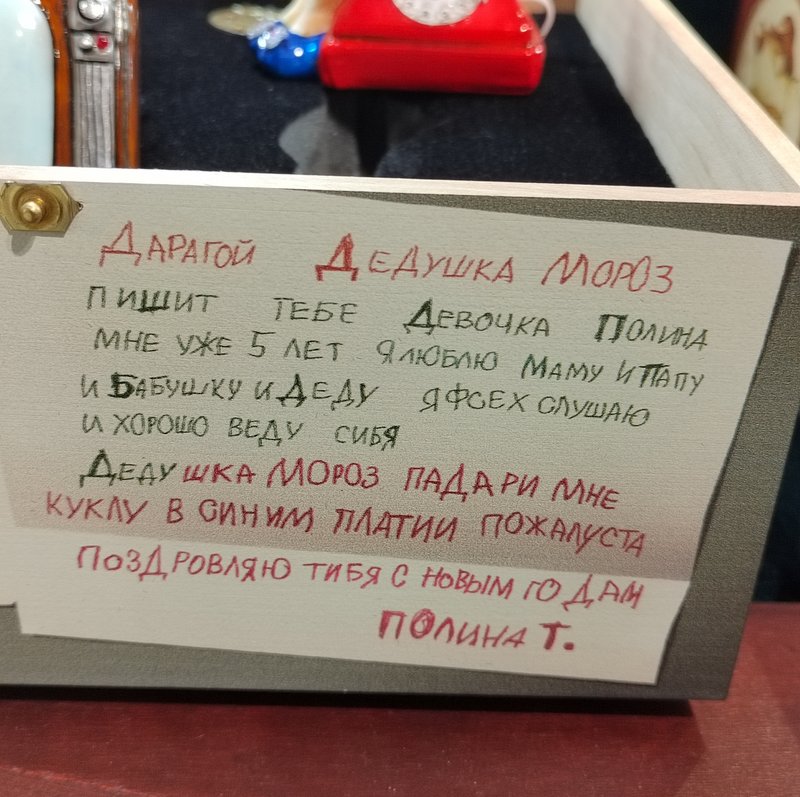 ДАРАГОЙ ДЕДУШКА МОРОЗ
ПИШИТ ТЕБЕ ДЕВОЧКА ПОЛИНА
МНЕ УЖЕ 5 ЛЕТ Я ЛЮБЛЮ МАМУ И ПАПУ
И БАБУШКУ И ДЕДУ Я ФСЕХ СЛУШАЮ
И ХОРОШО ВЕДУ СИБЯ
ДЕДУШКА МОРОЗ ПАДАРИ МНЕ
КУКЛУ В СИНИМ ПЛАТИИ ПОЖАЛУСТА
ПОЗДРОВЛЯЮ ТИБЯ С НОВЫМ ГОДАМ
ПОЛИНА Т.